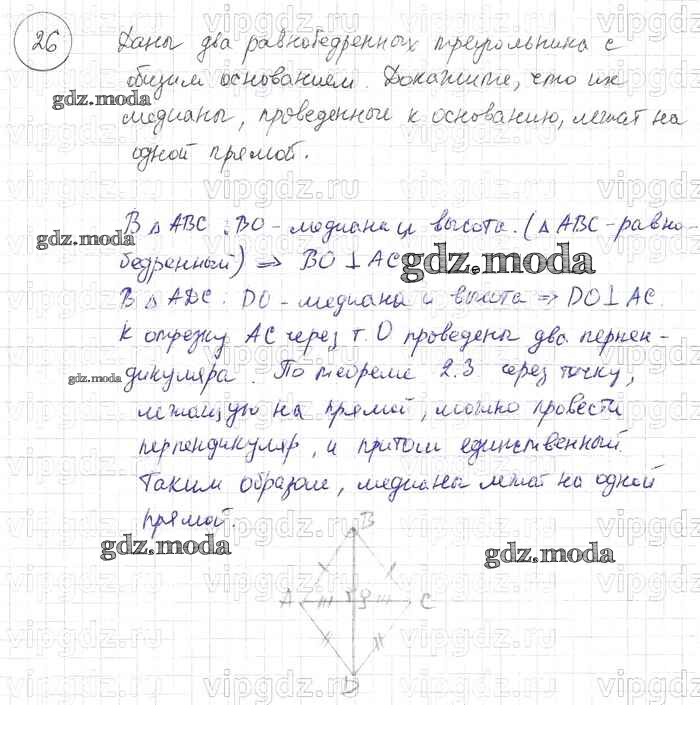 26
Даны два равнобедренных треугольника с
общим основанием. Докажите, что их
медианы, проведенные к основанию, лежат на
одной прямой.
В △ ABC : BO - медиана и высота. (△ ABC - равно-
бедренный) ⇒ BO ⊥ AC
В △ ADC : DO - медиана и высота ⇒ DO ⊥ AC.
К отрезку AC через т. O проведены два перпен-
дикуляра. По теореме 2.3 через точку,
лежащую на прямой, можно провести
перпендикуляр, и притом единственный.
Таким образом, медианы лежат на одной
прямой.
B
A
O
C
D
gdz.moda
gdz.moda
gdz.moda
gdz.moda
gdz.moda
gdz.moda
vipgdz.ru